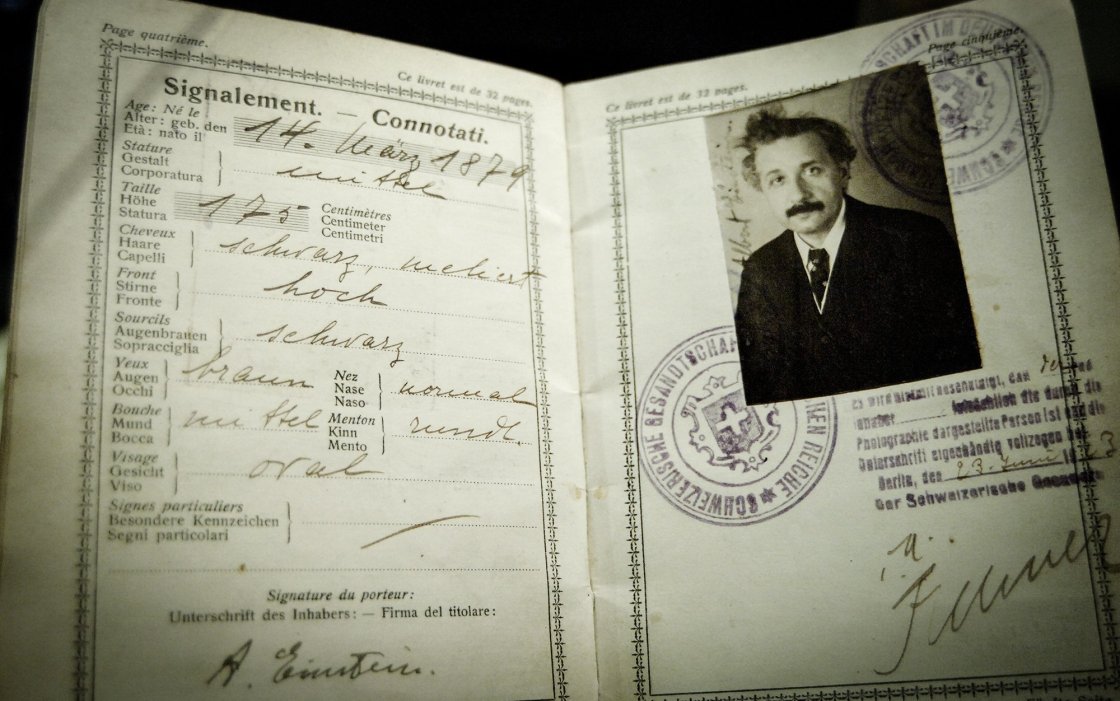 Page quatrième.
Ce livret est de 32 pages.
Signalement. — Connotati.
Age: Né le
Alter: geb. den
Età: nato il
14. März 1879
Stature
Gestalt
Corporatura
mittel
Taille
Höhe
Statura
175
Centimètres
Centimeter
Centimetri
Cheveux
Haare
Capelli
schwarz, meliert
Front
Stirne
Fronte
hoch
Sourcils
Augenbrauen
Sopracciglia
schwarz
Yeux
Augen
Occhi
braun
Nez
Nase
Naso
normal
Bouche
Mund
Bocca
mittel
Menton
Kinn
Mento
rundl.
Visage
Gesicht
Viso
oval
Signes particuliers
Besondere Kennzeichen
Segni particolari
Signature du porteur:
Unterschrift des Inhabers: — Firma del titolare:
A. Einstein.
Page cinquième.
Ce livret est de 32 pages.
SCHWEIZERISCHE GESANDTSCHAFT
REICHE
Inhaber die durch die
Photographie dargestellte Person ist und die
Unterschrift eigenhändig vollzogen
Berlin, den 23. Juni
Der Schweizerische